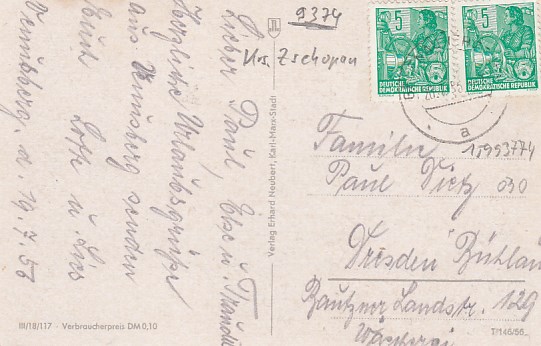 9374
Krs. Zschopau
Lieber Paul, Else u. Traudel
Herzliche Urlaubsgrüße
aus Venusberg senden
Euch Lotte u.
Venusberg, d. 19.7.56
Verlag Erhard Neubert, Karl-Marx-Stadt
5
DEUTSCHE
DEMOKRATISCHE REPUBLIK
5
DEUTSCHE
DEMOKRATISCHE REPUBLIK
a
1,993774
Familie
Paul Vietz
030
Dresden Bühlau
Bautzner Landstr. 129
III/18/117 - Verbraucherpreis DM 0,10
T/146/56